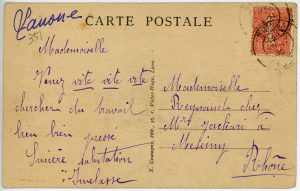 Lanone
351
CARTE POSTALE
Mademoiselle
Venez vite vite vite
chercher du travail
bien bien pressé
Sincère salutation
Mademoiselle
Reynaud chez
Mr
à
Messimy
Rhône